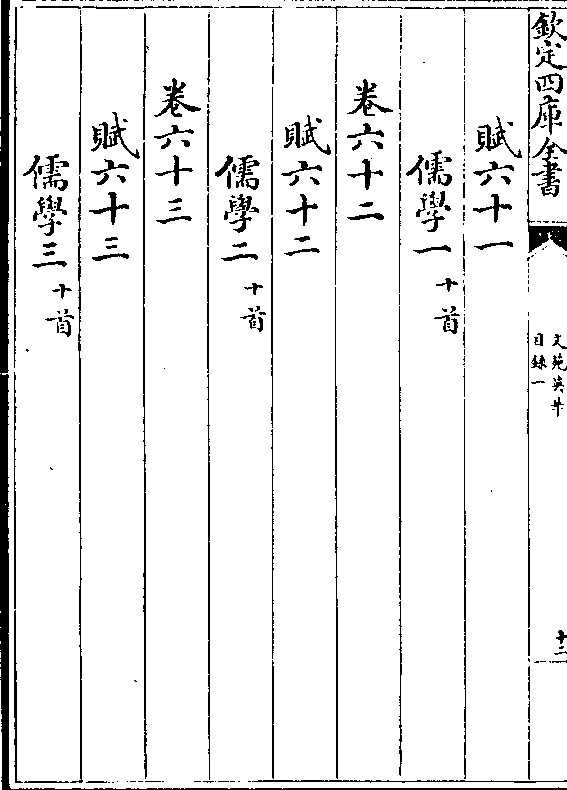 欽定四庫全書
文苑英華
目錄一
十二
賦六十一
儒學一十首
卷六十二
賦六十二
儒學二十首
卷六十三
賦六十三
儒學三十首